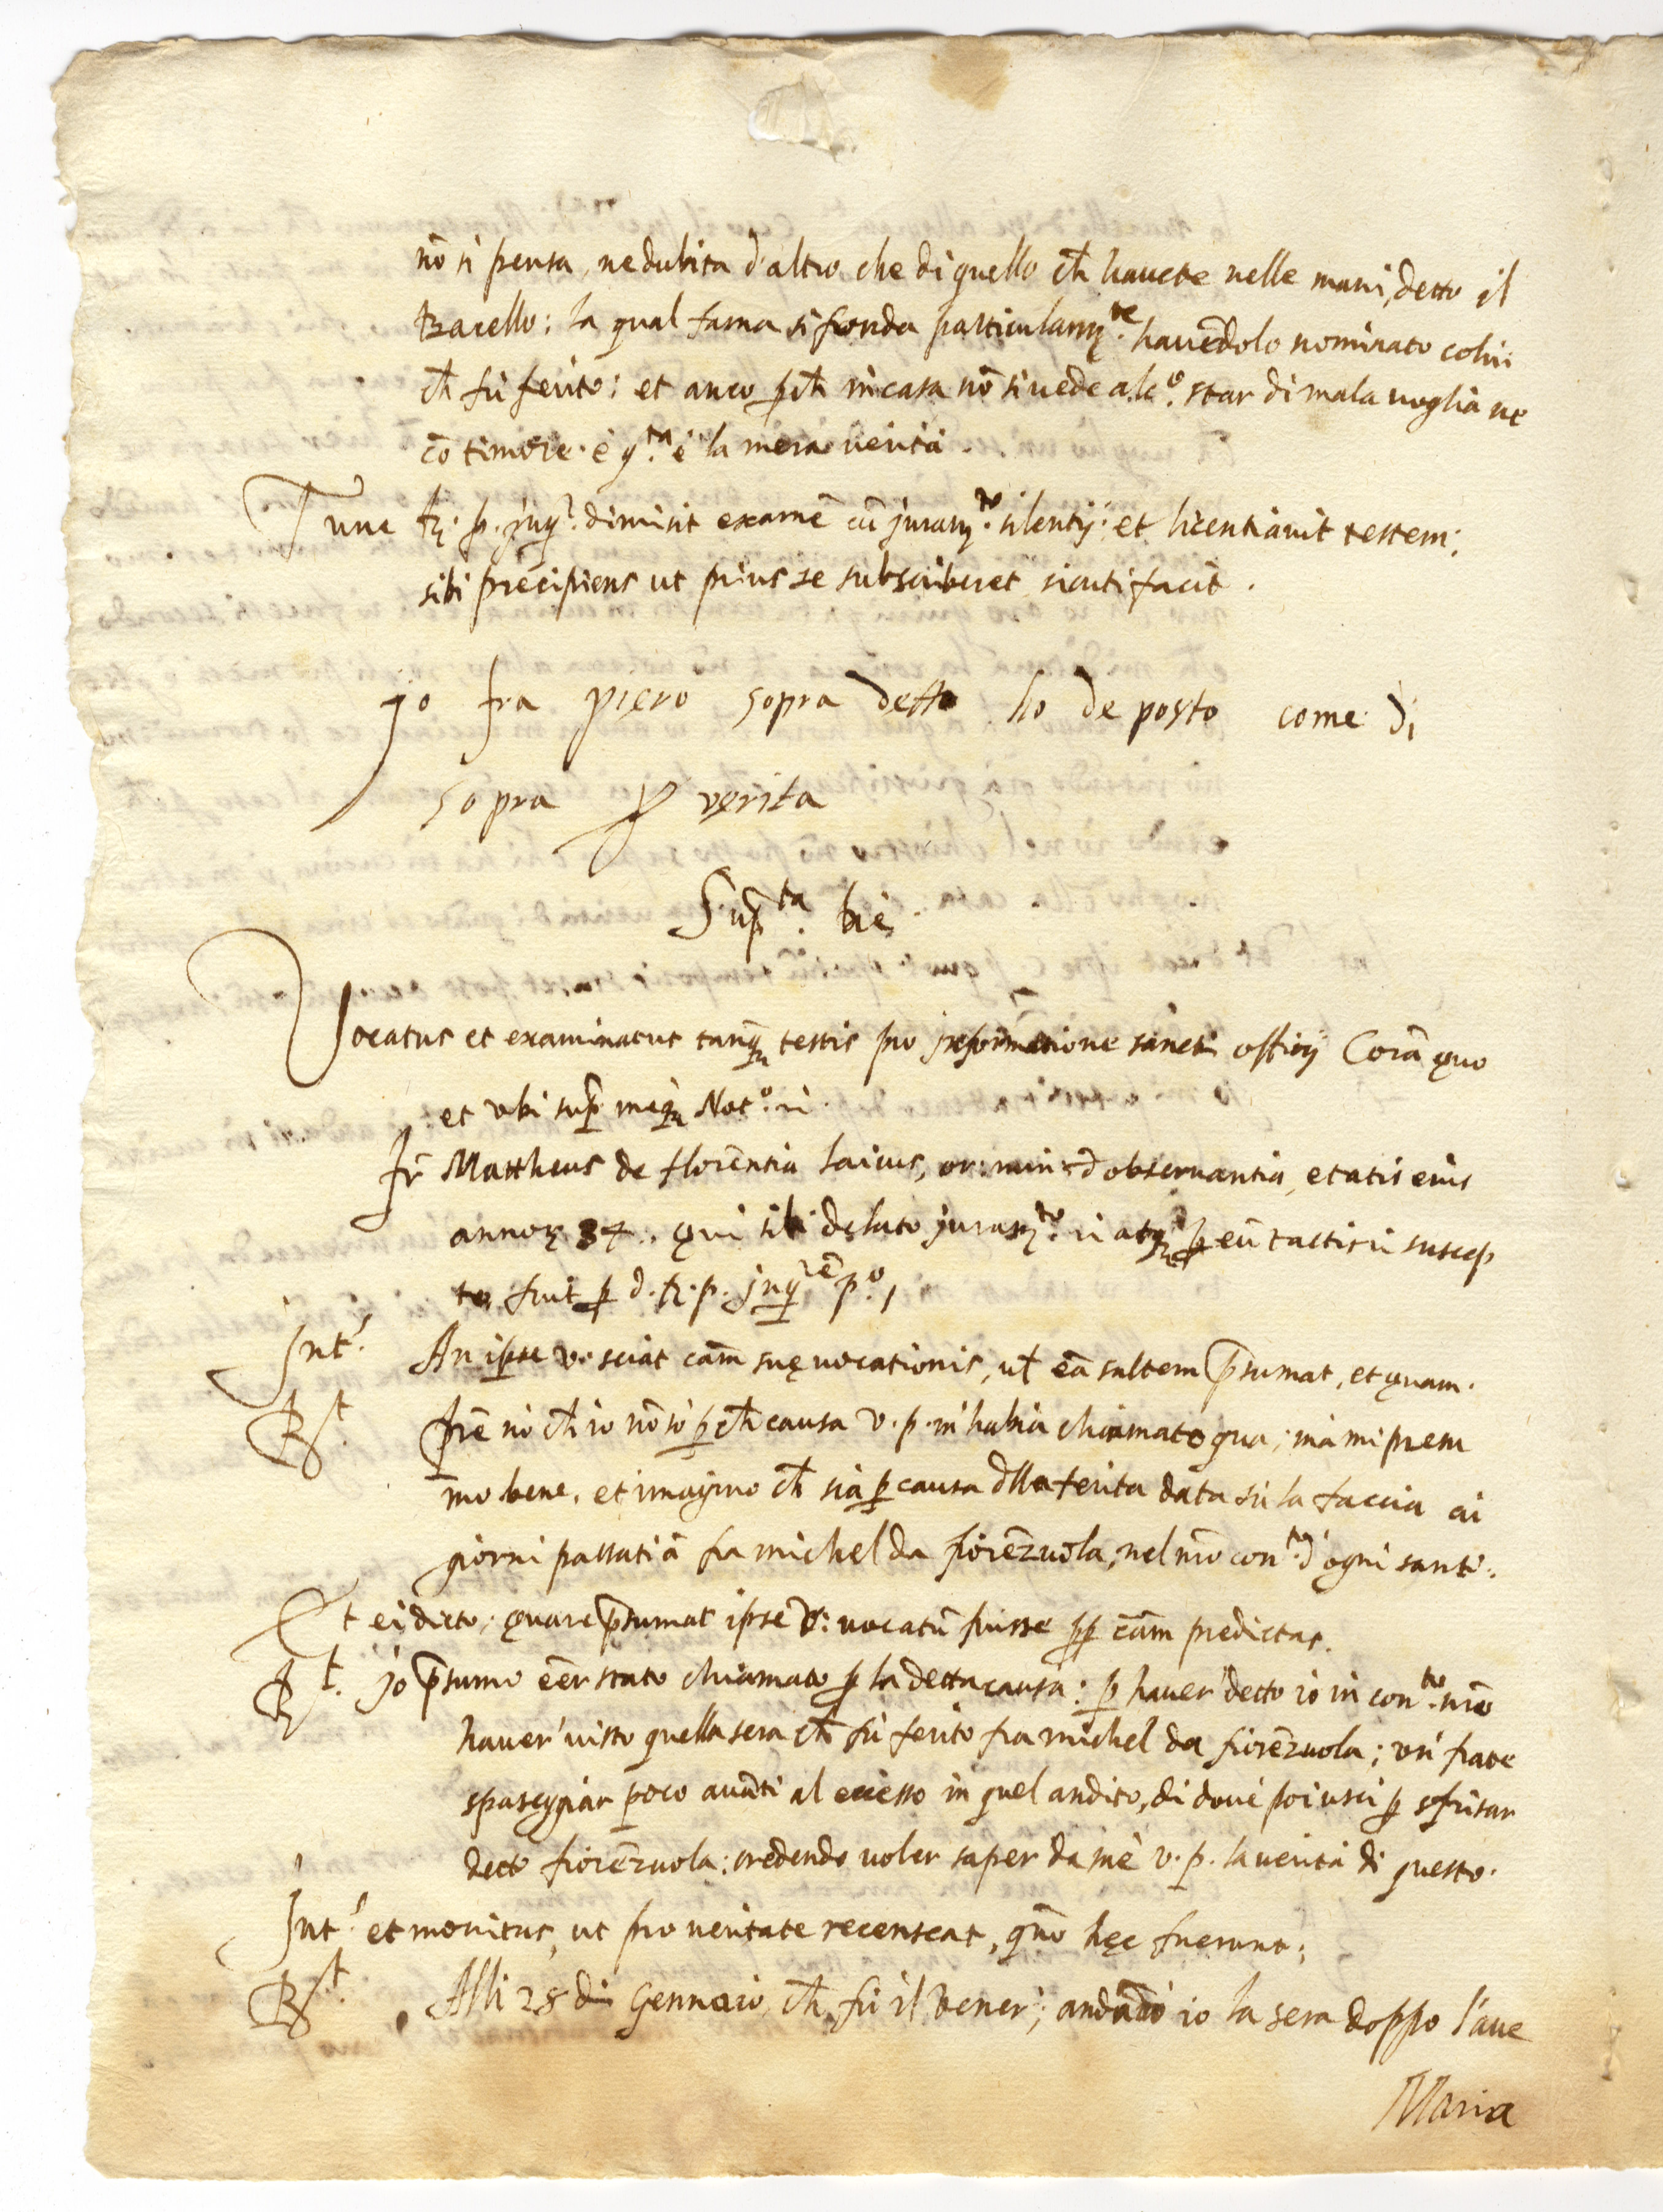 nō si pensa, ne dubita d'altro che di quello ch̄ havete nelle mani, detto il
Bacello: la qual fama si fonda particularm.te havēdolo nominato colui
ch̄ fù ferito: et anco p̱ch̄ in casa nō si vede alc.o star di mala voglia ne
cō timore. è q.ta è la mera verità.
Tunc fr. p. jnq.r dimisit examē cū juram.to silentij: et licentiavit testem;
sibi precipiens ut prius se subscriberet sicuti facit.
jo fra piero sopra detto ho de posto come di
sopra p̱ verita
Sup.ta die
Vocatus et examinatus tanq̄ testis pro jnformatione sancti officij Corā quo
et ubi sup̄ meq̄ Not.o ii
fr̄ Mattheus de florentia laicus, or: min: d observantia, etatis eius
annoꝝ 37. qui sibi delato juram.to ii atq̄ p̱ eū tactis ii suscep
to, fuit p̱ d. fr. p. jnq.rē p.o,
Int.s An ipse v. sciat cām suę vocationis, ul̄ eā saltem p̄sumat, et quam.
R.t p̄re nò ch̄ io nō sò p̱ ch̄ causa v. p. m'habia chiamato qua; mà mi presu
mo bene, et imagino ch̄ sia p̱ causa dlla ferita data sù la faccia ai
giorni passati à fra michel da fiorēzuola, nel nr̄o con.to d'ogni santi.
Et ei dicto; quare p̄sumat ipse v: vocatū fuisse pp̱ cām predictas.
R.t jo p̄sumo eēr stato chiamato p̱ la detta causa: p̱ haver detto io in con.to nr̄o
haver visto quella sera ch̄ fù ferito fra michel da fiorēzuola; un frate
spasseggiar poco avāti al eccesso in quel andito, di dove poi uscì p̱ sfrisar
detto fiorēzuola: credendo voler saper da mè v. p. la verità di questo.
Int.s et monitus, ut pro veritate recenseat, qn̄o hęc fuerunt;
R.t Alli 28 di Gennaio, ch̄ fù il Vener; andādo io la sera doppo l'ave
Maria